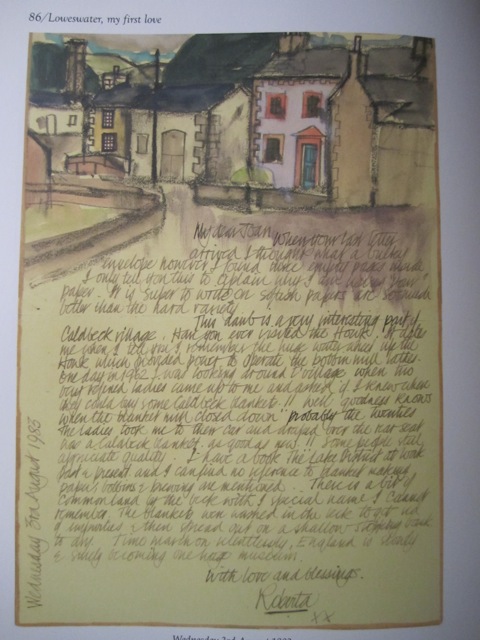 86/Loweswater, my first love
My dear Joan, When your last letter
arrived I thought what a bulky
envelope however I found nine empty pages inside
I only tell you this to explain why I am using your
paper. It is super to write on squish papers are
better than the hard variety
This daub is a very interesting part of
Caldbeck village. Have you ever visited the Howk. It
me when I tell you I remember the huge water wheel in the
Howk which provided power to operate the bobbin mill.
one day in 1982 I was looking around village when two
very refined ladies came up to me and asked if I knew where
they could buy some Caldbeck blankets!! Well goodness knows
when the blanket mill closed down probably the twenties
The ladies took me to their car and over the rear seat
was a Caldbeck blanket as good as new!! Some people still
appreciate quality. I have a book The Lake District at work
Past & present and I can find no reference to blanket making
paper, bobbins & brewing are mentioned. There is a bit of
Common land by the beck with a special name I cannot
remember. The blankets were washed in the beck to get rid
of impurities & then spread out on a shallow bank
to dry. Time marches on relentlessly. England is slowly
& surely becoming one huge museum.
With love and blessings.
Roberta
xx
Wednesday 3rd August 1983
Wednesday 3rd August 1983